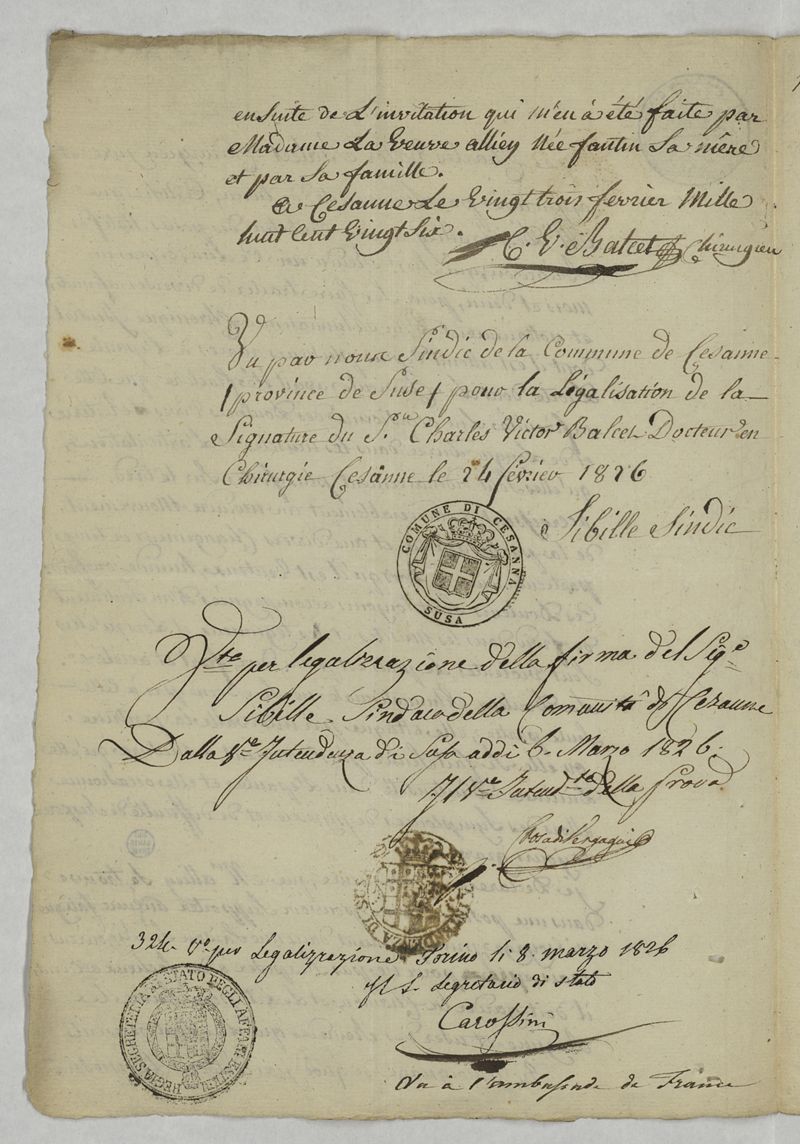 ensuite de L'invitation qui m'en à été faite par
Madame La Veuve alliey Née fantin Sa mère
et par Sa famille.
a Cesanne Le Vingt trois fevrier Mille
huit Cent Vingt Six.
C. V. Balcet Chirurgien
Vu par nous Sindic de la Commune de Cesanne
province de Suse pour la Légalisation de la
Signature du S.r Charles Victor Balcet Docteur en
Chirurgie Cesanne le 24 fevrier 1826
Sibille Sindic
COMUNE DI CESANNA
SUSA
V.to per legalizzazione della firma del Sig.e
Sibille Sindaco della Comunità di Cezanne
Dalla V.e Intendenza di Susa addi 6. Marzo 1826.
Il V.e Intend.te della Prov.a
INTENDENZA DI SUSA
324. V.o per Legalizzazione Torino li 8 marzo 1826
Il S. Segretario di stato
Carossini
REGIA SEGRETERIA DI STATO DEGLI AFFARI ESTERI
Vu à l'ambassade de France